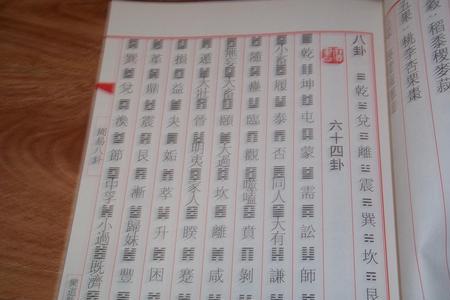 穀：稻黍稷麥菽
五果：桃李杏栗棗
八卦 ☰乾☱兌☲離☳震☴巽☵坎☶艮
六十四卦
䷀乾䷁坤䷂屯䷃蒙䷄需䷅訟䷆師
䷈小畜䷉履䷊泰䷋否䷌同人䷍大有䷎謙
䷐隨䷑蠱䷒臨䷓觀䷔噬嗑䷕賁䷖剝
䷘無妄䷙大畜䷚頤䷛大過䷜坎䷝離䷞咸
䷠遯䷡大壯䷢晉䷣明夷䷤家人䷥睽䷦蹇
䷨損䷩益䷪夬䷫姤䷬萃䷭升䷮困
䷰革䷱鼎䷲震䷳艮䷴漸䷵歸妹䷶豐
䷸巽䷹兌䷺渙䷻節䷼中孚䷽小過䷾既濟
簡易八卦